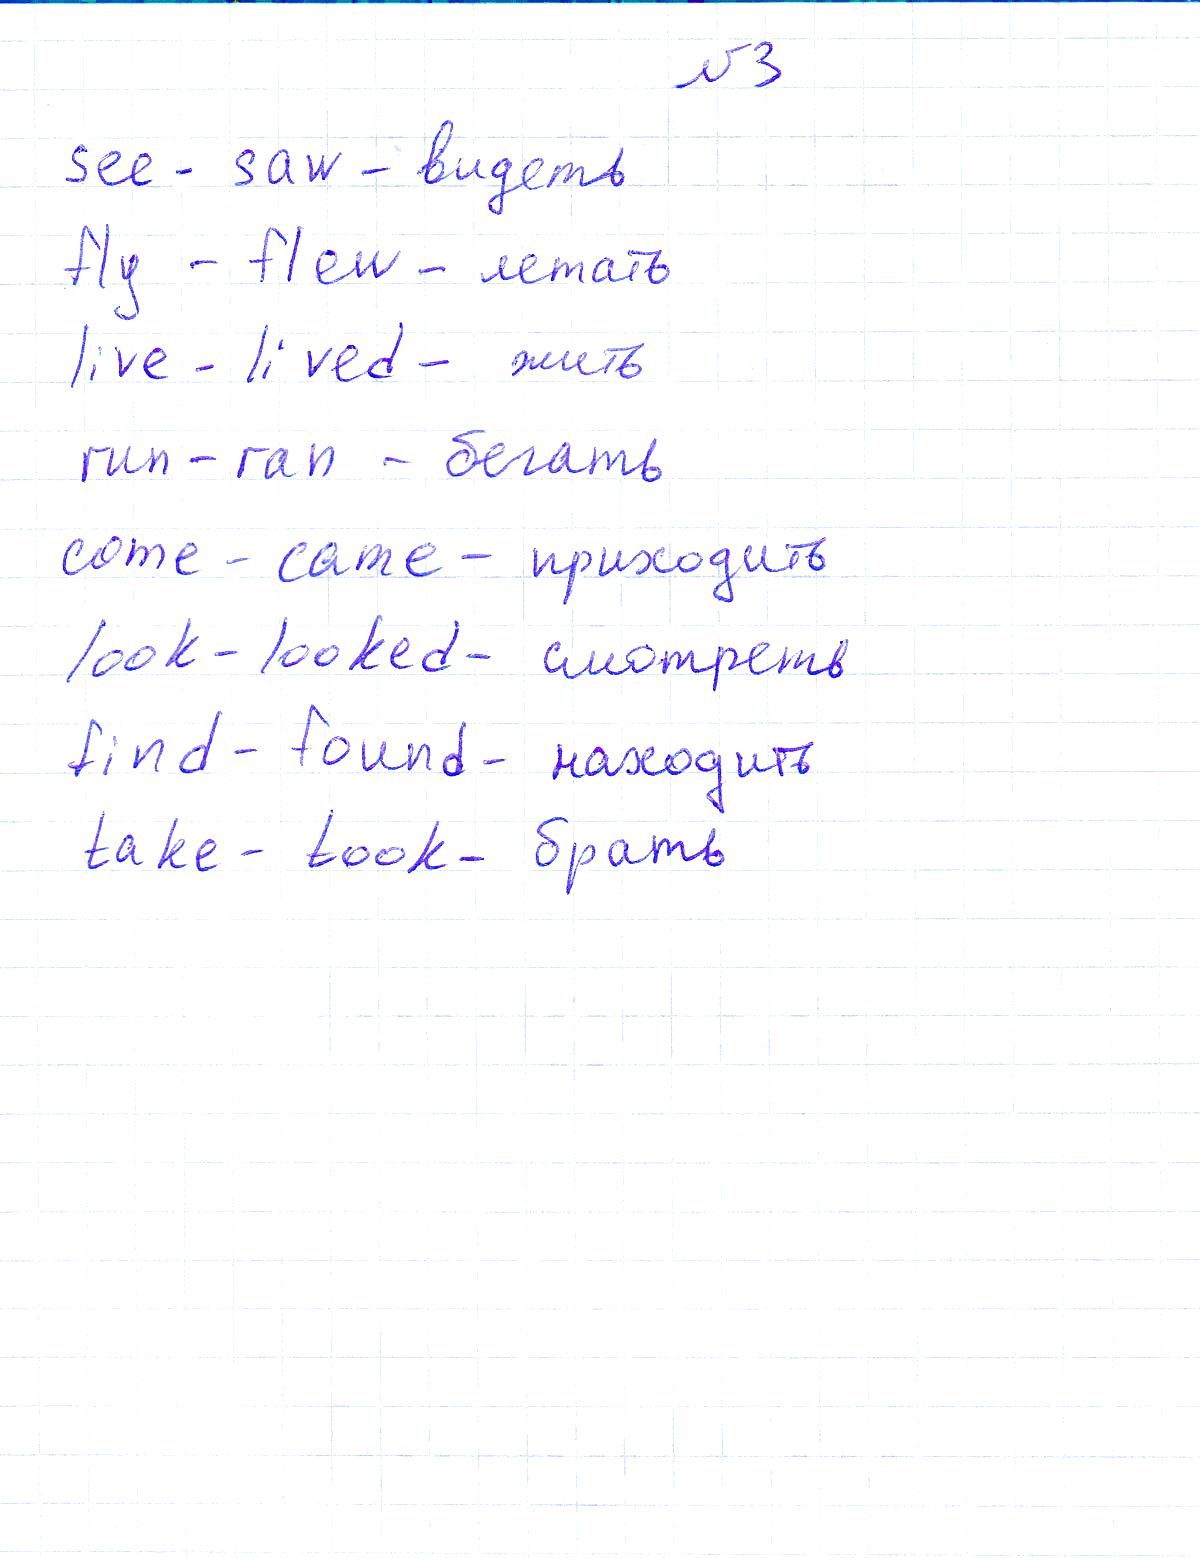 №3
see - saw - видеть
fly - flew - летать
live - lived - жить
run - ran - бегать
come - came - приходить
look - looked - смотреть
find - found - находить
take - took - брать